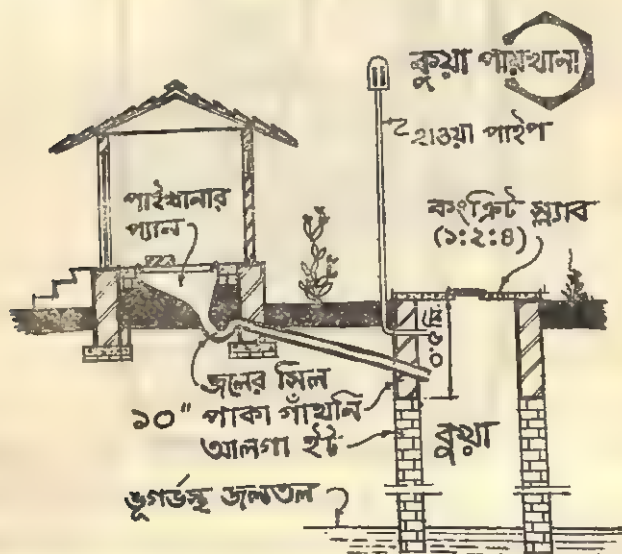 কুয়া পায়খানা
হাওয়া পাইপ
পাইখানার
প্যান
কংক্রিট স্ল্যাব
(১:২:৪)
০.৫ মি.
জলের সিল
১০" পাকা গাঁথনি
আলগা ইট
কুয়া
ভূগর্ভস্থ জলতল